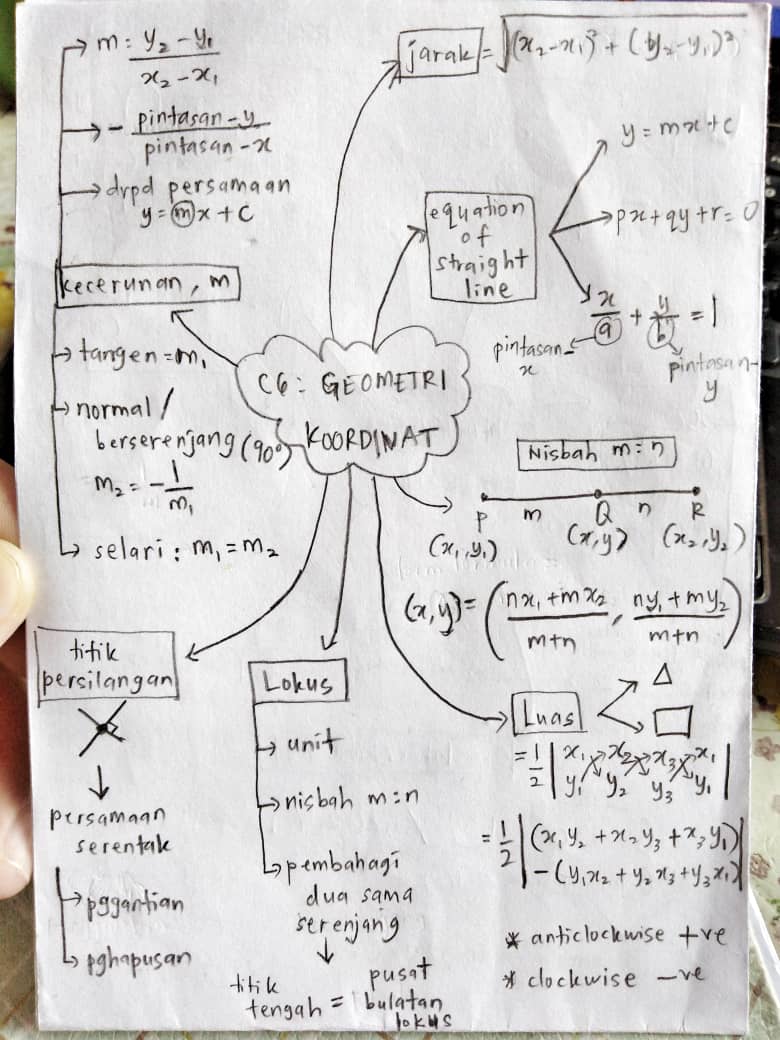 m: y₂ - y₁ / x₂ - x₁
- pintasan-y / pintasan-x
drpd persamaan
y = mx + c
kecerunan, m
tangen = m₁
normal /
berserenjang (90°)
m₂ = - 1/m₁
selari : m₁ = m₂
jarak = √(x₂-x₁)² + (y₂-y₁)²
equation
of
straight
line
y = mx + c
px + qy + r = 0
x/a + y/b = 1
pintasan-
x
pintasan-
y
C6: GEOMETRI
KOORDINAT
Nisbah m:n
P m Q n R
(x₁,y₁) (x,y) (x₂,y₂)
(x,y) = (nx₁ + mx₂ / m+n , ny₁ + my₂ / m+n)
titik
persilangan
persamaan
serentak
pggantian
pghapusan
Lokus
unit
nisbah m:n
pembahagi
dua sama
serenjang
titik tengah = pusat bulatan lokus
Luas
= 1/2 | x₁ x₂ x₃ x₁ |
y₁ y₂ y₃ y₁
= 1/2 | (x₁y₂ + x₂y₃ + x₃y₁)
- (y₁x₂ + y₂x₃ + y₃x₁) |
* anticlockwise +ve
* clockwise -ve